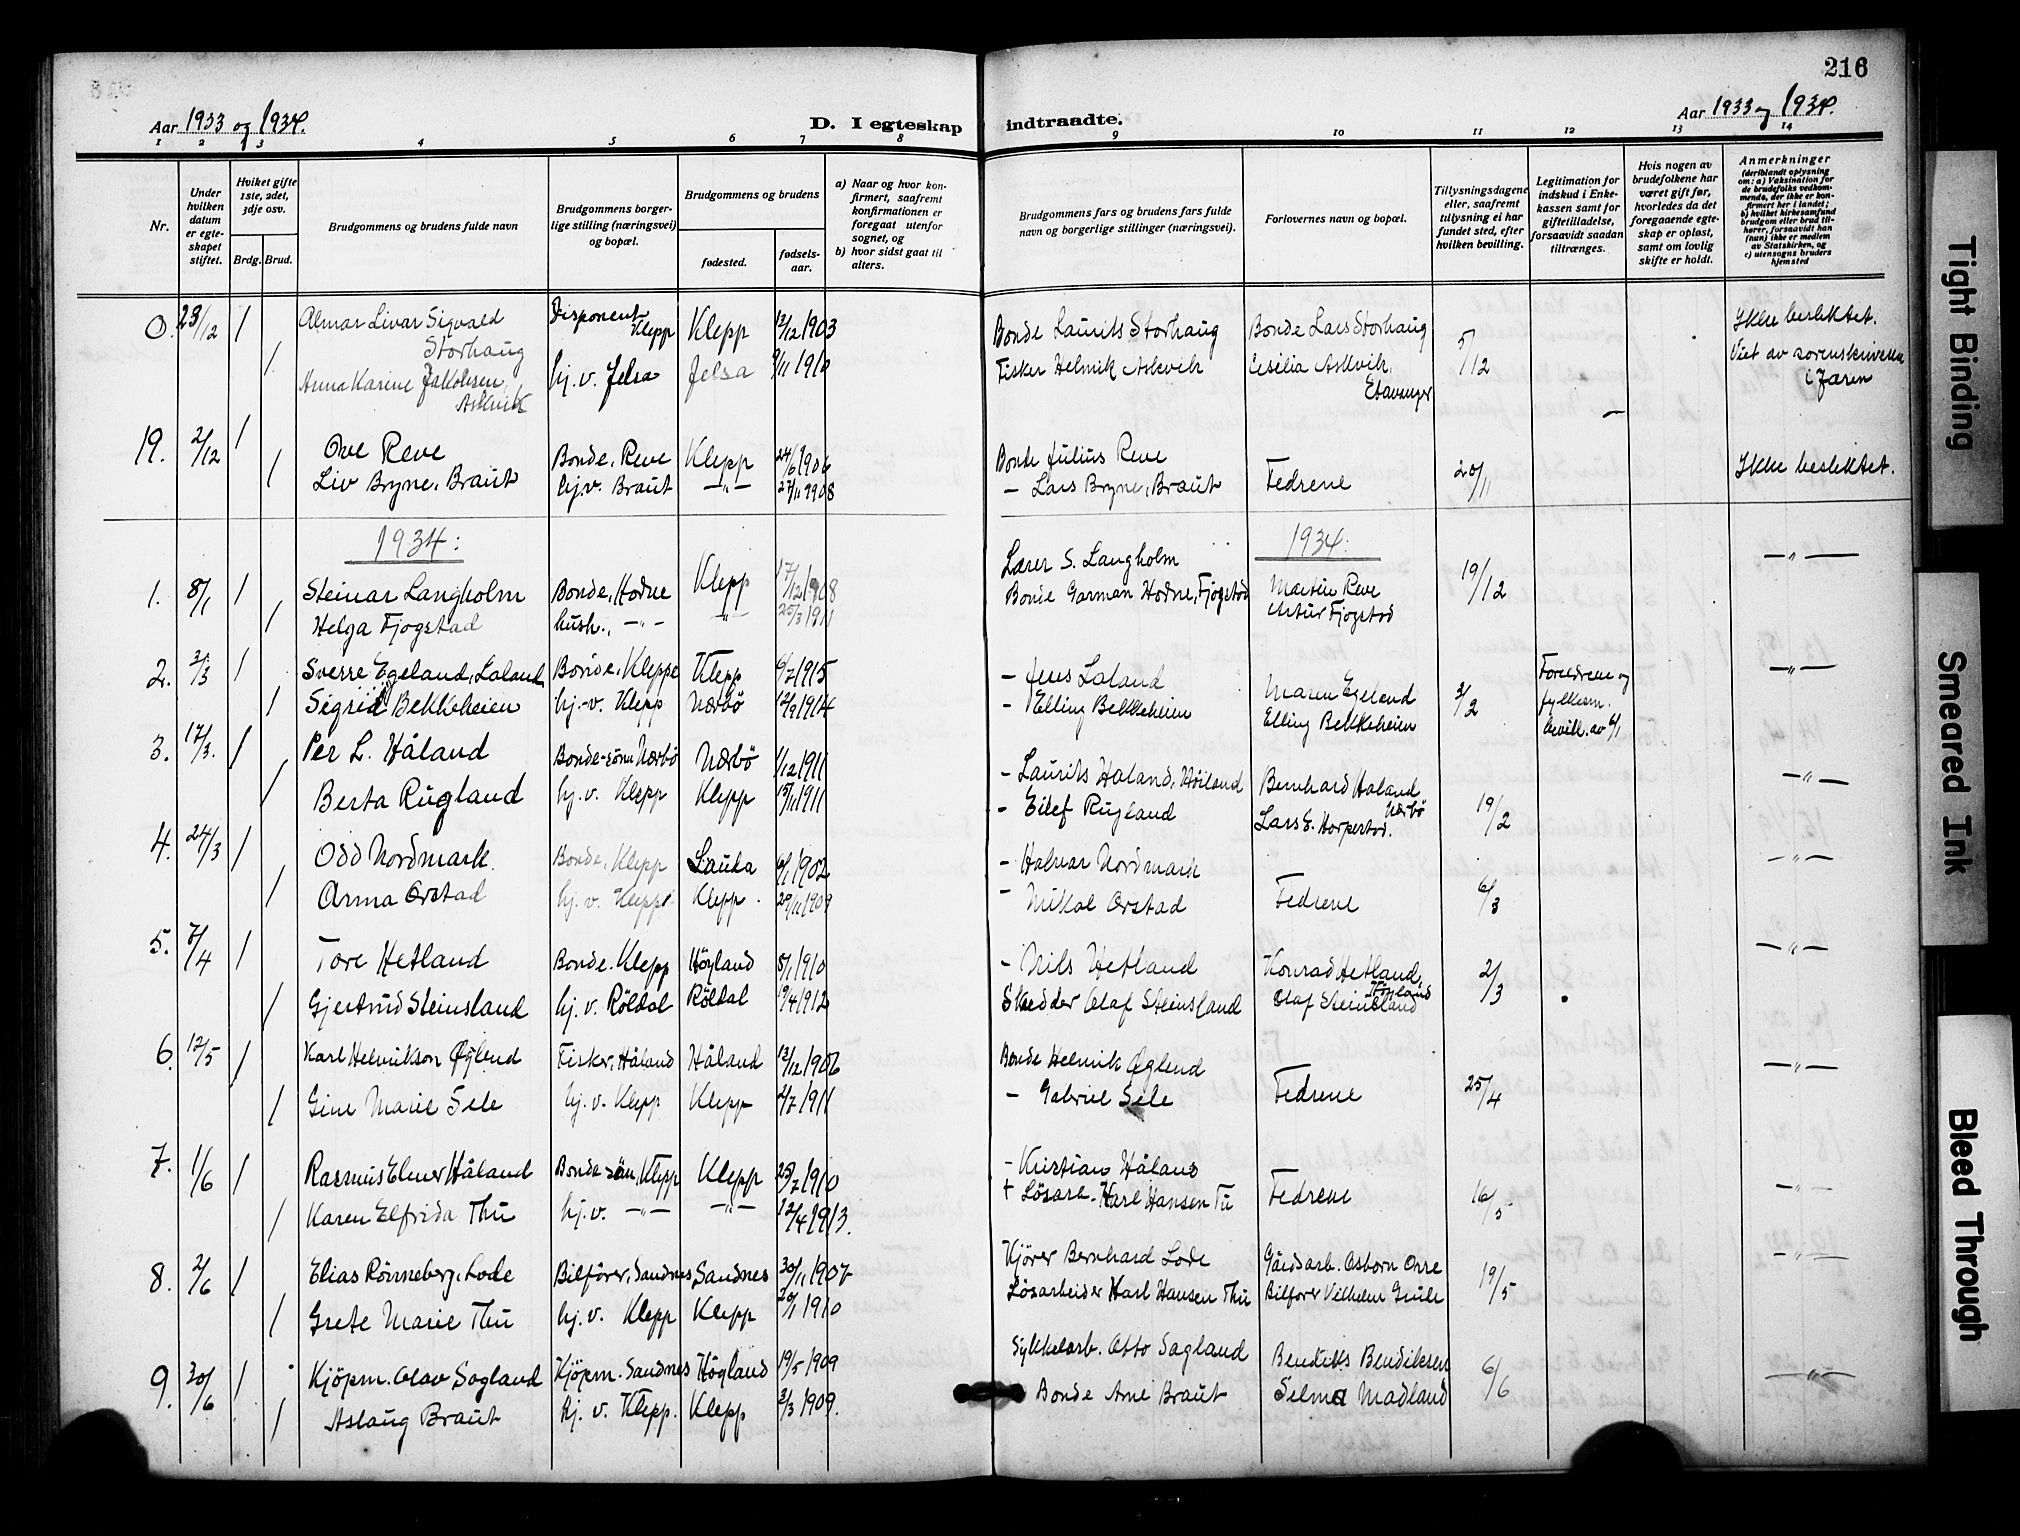 216
Aar 1933 og 1934.
D. I egteskap indtraadte.
Aar 1933 og 1934.
1 2 3 4 5 6 7 8 9 10 11 12 13 14
Nr.
Under hvilken datum er egteskapet stiftet.
Hviket gifte 1ste, 2det, 3dje osv.
Brdg. Brud.
Brudgommens og brudens fulde navn
Brudgommens borgerlige stilling (næringsvei) og bopæl.
Brudgommens og brudens
fødested.
fødselsaar.
a) Naar og hvor konfirmert, saafremt konfirmationen er foregaat utenfor sognet, og
b) hvor sidst gaat til alters.
Brudgommens fars og brudens fars fulde navn og borgerlige stillinger (næringsvei).
Forlovernes navn og bopæl.
Tillysningsdagene eller, saafremt tillysning ei har fundet sted, efter hvilken bevilling.
Legitimation for indskud i Enkekassen samt for giftetilladelse, forsaavidt saadan tiltrænges.
Hvis nogen av brudefolkene har været gift før, hvorledes da det foregaaende egteskap er opløst, samt om lovlig skifte er holdt.
Anmerkninger (deriblandt oplysning om: a) Vaksination for de brudefolks vedkommende, der ikke er konfirmert her i landet; b) hvilket kirkesamfund brudgom eller brud tilhører, forsaavidt han (hun) ikke er medlem av Statskirken, og c) utensogns bruders hjemsted
0. 23/12 1 Almar Livar Sigvald Storhaug Disponent Klepp Klepp 12/12 1903 Bonde Laurits Storhaug Bonde Lars Storhaug 5/12 Ikke beslektet.
1 Anna Karine Jakobsen Askvik hj. v. Jelsa Jelsa 9/11 1910 Fisker Helmik Askvik Cesilia Askvik, Stavanger Viet av sorenskriveren i Jæren
19. 2/12 1 Ove Reve Bonde, Reve Klepp 24/6 1906 Bonde Julius Reve Fedrene 20/11 Ikke beslektet.
1 Liv Bryne, Braut hj.v. Braut —"— 27/11 1908 — Lars Bryne, Braut
1934: 1934:
1. 8/1 1 Steinar Langholm Bonde, Hodne Klepp 17/12 1908 Lærer S. Langholm Martin Reve 19/12 —"—
1 Helga Fjogstad hush., —"— —"— 25/3 1911 Bonde Garman Hodne, Fjogstad Artur Fjogstad
2. 3/3 1 Sverre Egeland, Laland Bonde, Kleppe Klepp 6/7 1915 — Jens Laland Maren Egeland 3/2 Foreldrene og fylkesm. bevill. av 6/1 —"—
1 Sigrid Bekkeheien hj.-v. Klepp Nærbö 12/9 1914 — Elling Bekkeheien Elling Bekkeheien
3. 17/3. 1 Per L. Håland Bonde-sönn Nærbö Nærbö 1/12 1911 — Laurits Håland, Höiland Bernhard Håland Nærbö 19/2 —"—
1 Berta Rugland hj. v. Klepp Klepp 15/11 1911 — Eilef Rugland Lars E. Horpestad.
4. 24/3 1 Odd Nordmark. Bonde, Klepp Lauda 6/1 1902 — Halvar Nordmark Fedrene 6/3 —"—
1 Anna Orstad hj. v. Klepp Klepp. 29/11 1909 — Mikal Orstad
5. 7/4 1 Tore Hetland Bonde. Klepp Höyland 8/1 1910 — Nils Hetland Konrad Hetland, Höyland 2/3 —"—
1 Gjertrud Steinsland hj. v. Röldal Röldal 19/4 1912 Skredder Olaf Steinsland Olaf Steinsland
6. 12/5 1 Karl Helmikson Øglend Fisker, Håland Håland 13/12 1906 Bonde Helmik Øglend Fedrene 25/4 —"—
1 Gine Marie Sele hj. v. Klepp Klepp 4/7 1911 — Gabriel Sele
7. 1/6 1 Rasmus Elmer Håland Bonde-sönn, Klepp Klepp 25/7 1910 — Kristian Håland Fedrene 16/5 —"—
1 Karen Elfrida Thu hj. v. —"— —"— 12/4 1913. + Løsarb. Karl Hansen Tu
8. 2/6 1 Elias Rönneberg, Lode Bilförer, Sandnes Sandnes 30/11 1907 Kjører Bernhard Lode Gårdsarb. Osborn Orre 19/5 —"—
1 Grete Marie Thu hj. v. Klepp Klepp 20/1 1910 Løsarbeider Karl Hansen Thu Bilfører Vilhelm Grude
9. 30/6 1 Kjöpm. Olav Sagland Kjöpm. Sandnes Högland 19/5 1909 Sykkelarb. Otto Sagland Bendiks Bendiksen 6/6 —"—
1 Aslaug Braut hj. v. Klepp. Klepp 2/3 1909. Bonde Arne Braut Selma Madland
Tight Binding
Smeared Ink
Bleed Through